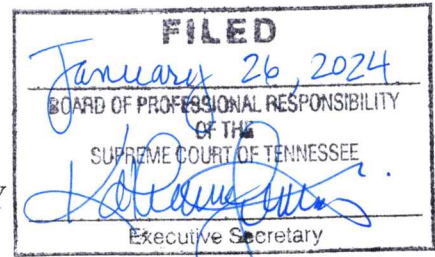 FILED
January 26, 2024
BOARD OF PROFESSIONAL RESPONSIBILITY
OF THE
SUPREME COURT OF TENNESSEE
Executive Secretary
Y